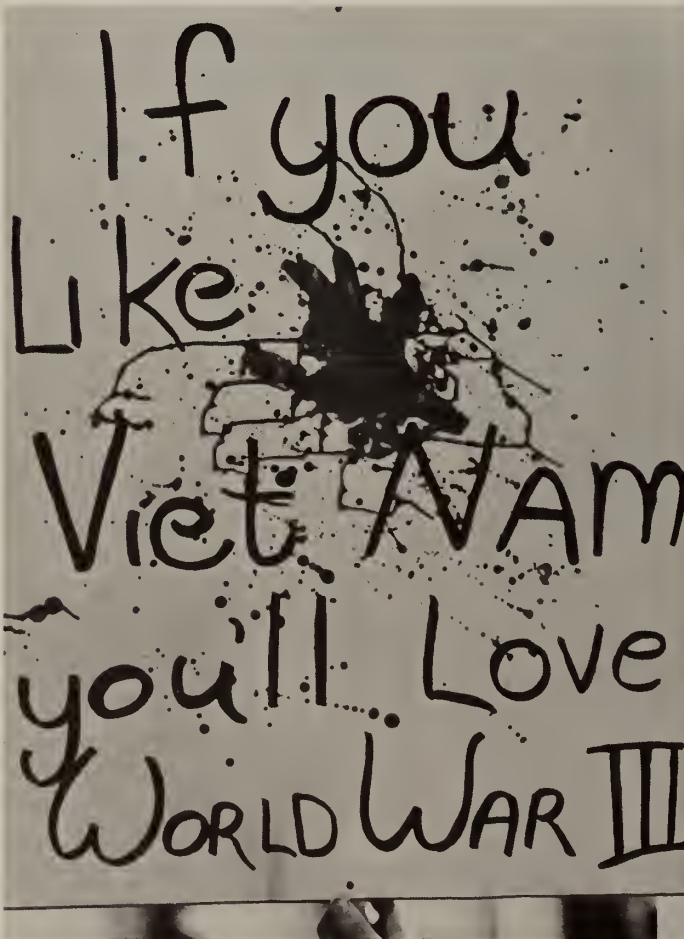 If you
Like
Viet Nam
you'll Love
World War III